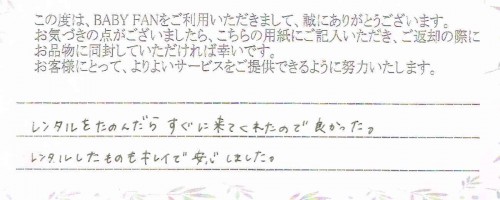 この度は、BABY FANをご利用いただきまして、誠にありがとうございます。
お気づきの点がございましたら、こちらの用紙にご記入いただき、ご返却の際に
お品物に同封していただければ幸いです。
お客様にとって、よりよいサービスをご提供できるように努力いたします。
レンタルをたのんだら すぐに来てくれたので良かった。
レンタルしたものもキレイで安心しました。